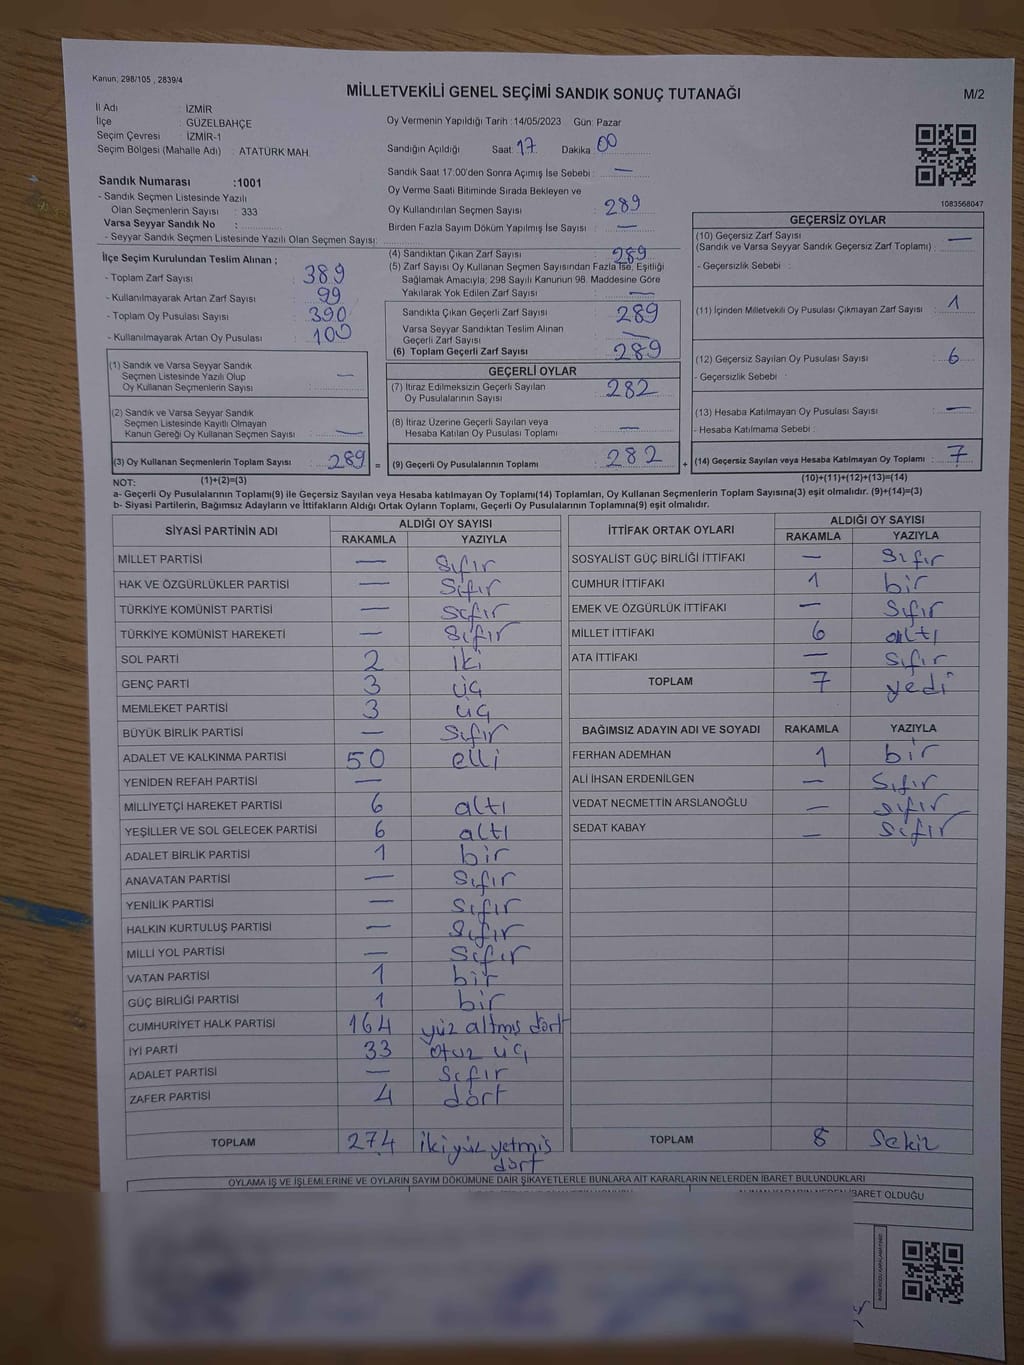 Kanun, 298/105 , 2839/4
MİLLETVEKİLİ GENEL SEÇİMİ SANDIK SONUÇ TUTANAĞI
M/2
İl Adı : İZMİR
İlçe : GÜZELBAHÇE
Seçim Çevresi : İZMİR-1
Seçim Bölgesi (Mahalle Adı) : ATATÜRK MAH.
Oy Vermenin Yapıldığı Tarih :14/05/2023 Gün: Pazar
Sandığın Açıldığı Saat: 17 Dakika 00
Sandık Saat 17.00'den Sonra Açımış İse Sebebi : —
Oy Verme Saati Bitiminde Sırada Bekleyen ve
Oy Kullandırılan Seçmen Sayısı : 289
Birden Fazla Sayım Döküm Yapılmış İse Sayısı : —
Sandık Numarası :1001
- Sandık Seçmen Listesinde Yazılı
Olan Seçmenlerin Sayısı : 333
Varsa Seyyar Sandık No :
- Seyyar Sandık Seçmen Listesinde Yazılı Olan Seçmen Sayısı:
1083568047
İlçe Seçim Kurulundan Teslim Alınan ;
- Toplam Zarf Sayısı : 389
- Kullanılmayarak Artan Zarf Sayısı : 99
- Toplam Oy Pusulası Sayısı : 390
- Kullanılmayarak Artan Oy Pusulası : 100
(1) Sandık ve Varsa Seyyar Sandık
Seçmen Listesinde Yazılı Olup
Oy Kullanan Seçmenlerin Sayısı : —
(2) Sandık ve Varsa Seyyar Sandık
Seçmen Listesinde Kayıtlı Olmayan
Kanun Gereği Oy Kullanan Seçmen Sayısı : —
(3) Oy Kullanan Seçmenlerin Toplam Sayısı : 289 =
(1)+(2)=(3)
(4) Sandıktan Çıkan Zarf Sayısı : 289
(5) Zarf Sayısı Oy Kullanan Seçmen Sayısından Fazla İse, Eşitliği
Sağlamak Amacıyla; 298 Sayılı Kanunun 98. Maddesine Göre
Yakılarak Yok Edilen Zarf Sayısı : —
Sandıkta Çıkan Geçerli Zarf Sayısı : 289
Varsa Seyyar Sandıktan Teslim Alınan
Geçerli Zarf Sayısı : —
(6) Toplam Geçerli Zarf Sayısı : 289
GEÇERLİ OYLAR
(7) İtiraz Edilmeksizin Geçerli Sayılan
Oy Pusulalarının Sayısı : 282
(8) İtiraz Üzerine Geçerli Sayılan veya
Hesaba Katılan Oy Pusulası Toplamı : —
(9) Geçerli Oy Pusulalarının Toplamı : 282 +
GEÇERSİZ OYLAR
(10) Geçersiz Zarf Sayısı
(Sandık ve Varsa Seyyar Sandık Geçersiz Zarf Toplamı) : —
- Geçersizlik Sebebi :
(11) İçinden Milletvekili Oy Pusulası Çıkmayan Zarf Sayısı : 1
(12) Geçersiz Sayılan Oy Pusulası Sayısı : 6
- Geçersizlik Sebebi :
(13) Hesaba Katılmayan Oy Pusulası Sayısı : —
- Hesaba Katılmama Sebebi :
(14) Geçersiz Sayılan veya Hesaba Katılmayan Oy Toplamı : 7
(10)+(11)+(12)+(13)=(14)
NOT:
a- Geçerli Oy Pusulalarının Toplamı(9) ile Geçersiz Sayılan veya Hesaba katılmayan Oy Toplamı(14) Toplamları, Oy Kullanan Seçmenlerin Toplam Sayısına(3) eşit olmalıdır. (9)+(14)=(3)
b- Siyasi Partilerin, Bağımsız Adayların ve İttifakların Aldığı Ortak Oyların Toplamı, Geçerli Oy Pusulalarının Toplamına(9) eşit olmalıdır.
SİYASİ PARTİNİN ADI ALDIĞI OY SAYISI
RAKAMLA YAZIYLA
MİLLET PARTİSİ — sıfır
HAK VE ÖZGÜRLÜKLER PARTİSİ — sıfır
TÜRKİYE KOMÜNİST PARTİSİ — sıfır
TÜRKİYE KOMÜNİST HAREKETİ — sıfır
SOL PARTİ 2 iki
GENÇ PARTİ 3 üç
MEMLEKET PARTİSİ 3 üç
BÜYÜK BİRLİK PARTİSİ — sıfır
ADALET VE KALKINMA PARTİSİ 50 elli
YENİDEN REFAH PARTİSİ —
MİLLİYETÇİ HAREKET PARTİSİ 6 altı
YEŞİLLER VE SOL GELECEK PARTİSİ 6 altı
ADALET BİRLİK PARTİSİ 1 bir
ANAVATAN PARTİSİ — sıfır
YENİLİK PARTİSİ — sıfır
HALKIN KURTULUŞ PARTİSİ — sıfır
MİLLİ YOL PARTİSİ — sıfır
VATAN PARTİSİ 1 bir
GÜÇ BİRLİĞİ PARTİSİ 1 bir
CUMHURİYET HALK PARTİSİ 164 yüz altmış dört
İYİ PARTİ 33 otuz üç
ADALET PARTİSİ — sıfır
ZAFER PARTİSİ 4 dört
TOPLAM 274 ikiyüz yetmiş
dört
İTTİFAK ORTAK OYLARI ALDIĞI OY SAYISI
RAKAMLA YAZIYLA
SOSYALİST GÜÇ BİRLİĞİ İTTİFAKI — sıfır
CUMHUR İTTİFAKI 1 bir
EMEK VE ÖZGÜRLÜK İTTİFAKI — sıfır
MİLLET İTTİFAKI 6 altı
ATA İTTİFAKI — sıfır
TOPLAM 7 yedi
BAĞIMSIZ ADAYIN ADI VE SOYADI RAKAMLA YAZIYLA
FERHAN ADEMHAN 1 bir
ALİ İHSAN ERDENİLGEN — sıfır
VEDAT NECMETTİN ARSLANOĞLU — sıfır
SEDAT KABAY — sıfır
TOPLAM 8 sekiz
OYLAMA İŞ VE İŞLEMLERİNE VE OYLARIN SAYIM DÖKÜMÜNE DAİR ŞİKAYETLERLE BUNLARA AİT KARARLARIN NELERDEN İBARET BULUNDUKLARI
İBARET OLDUĞU